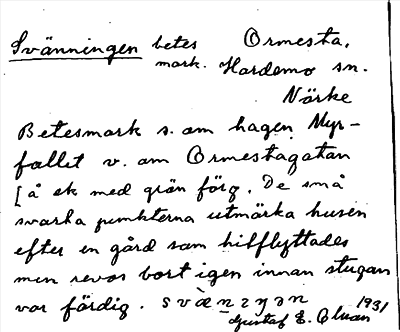 Svänningen betes Ormesta,
mark. Hardemo sn.
Närke
Betesmark s. om hagen Myr-
fallet v. om Ormestagatan
[å ek med grön färg. De små
svarta punkterna utmärka husen
efter en gård som hitflyttades
men revos bort igen innan stugan
var färdig.
Gustaf E. 1931